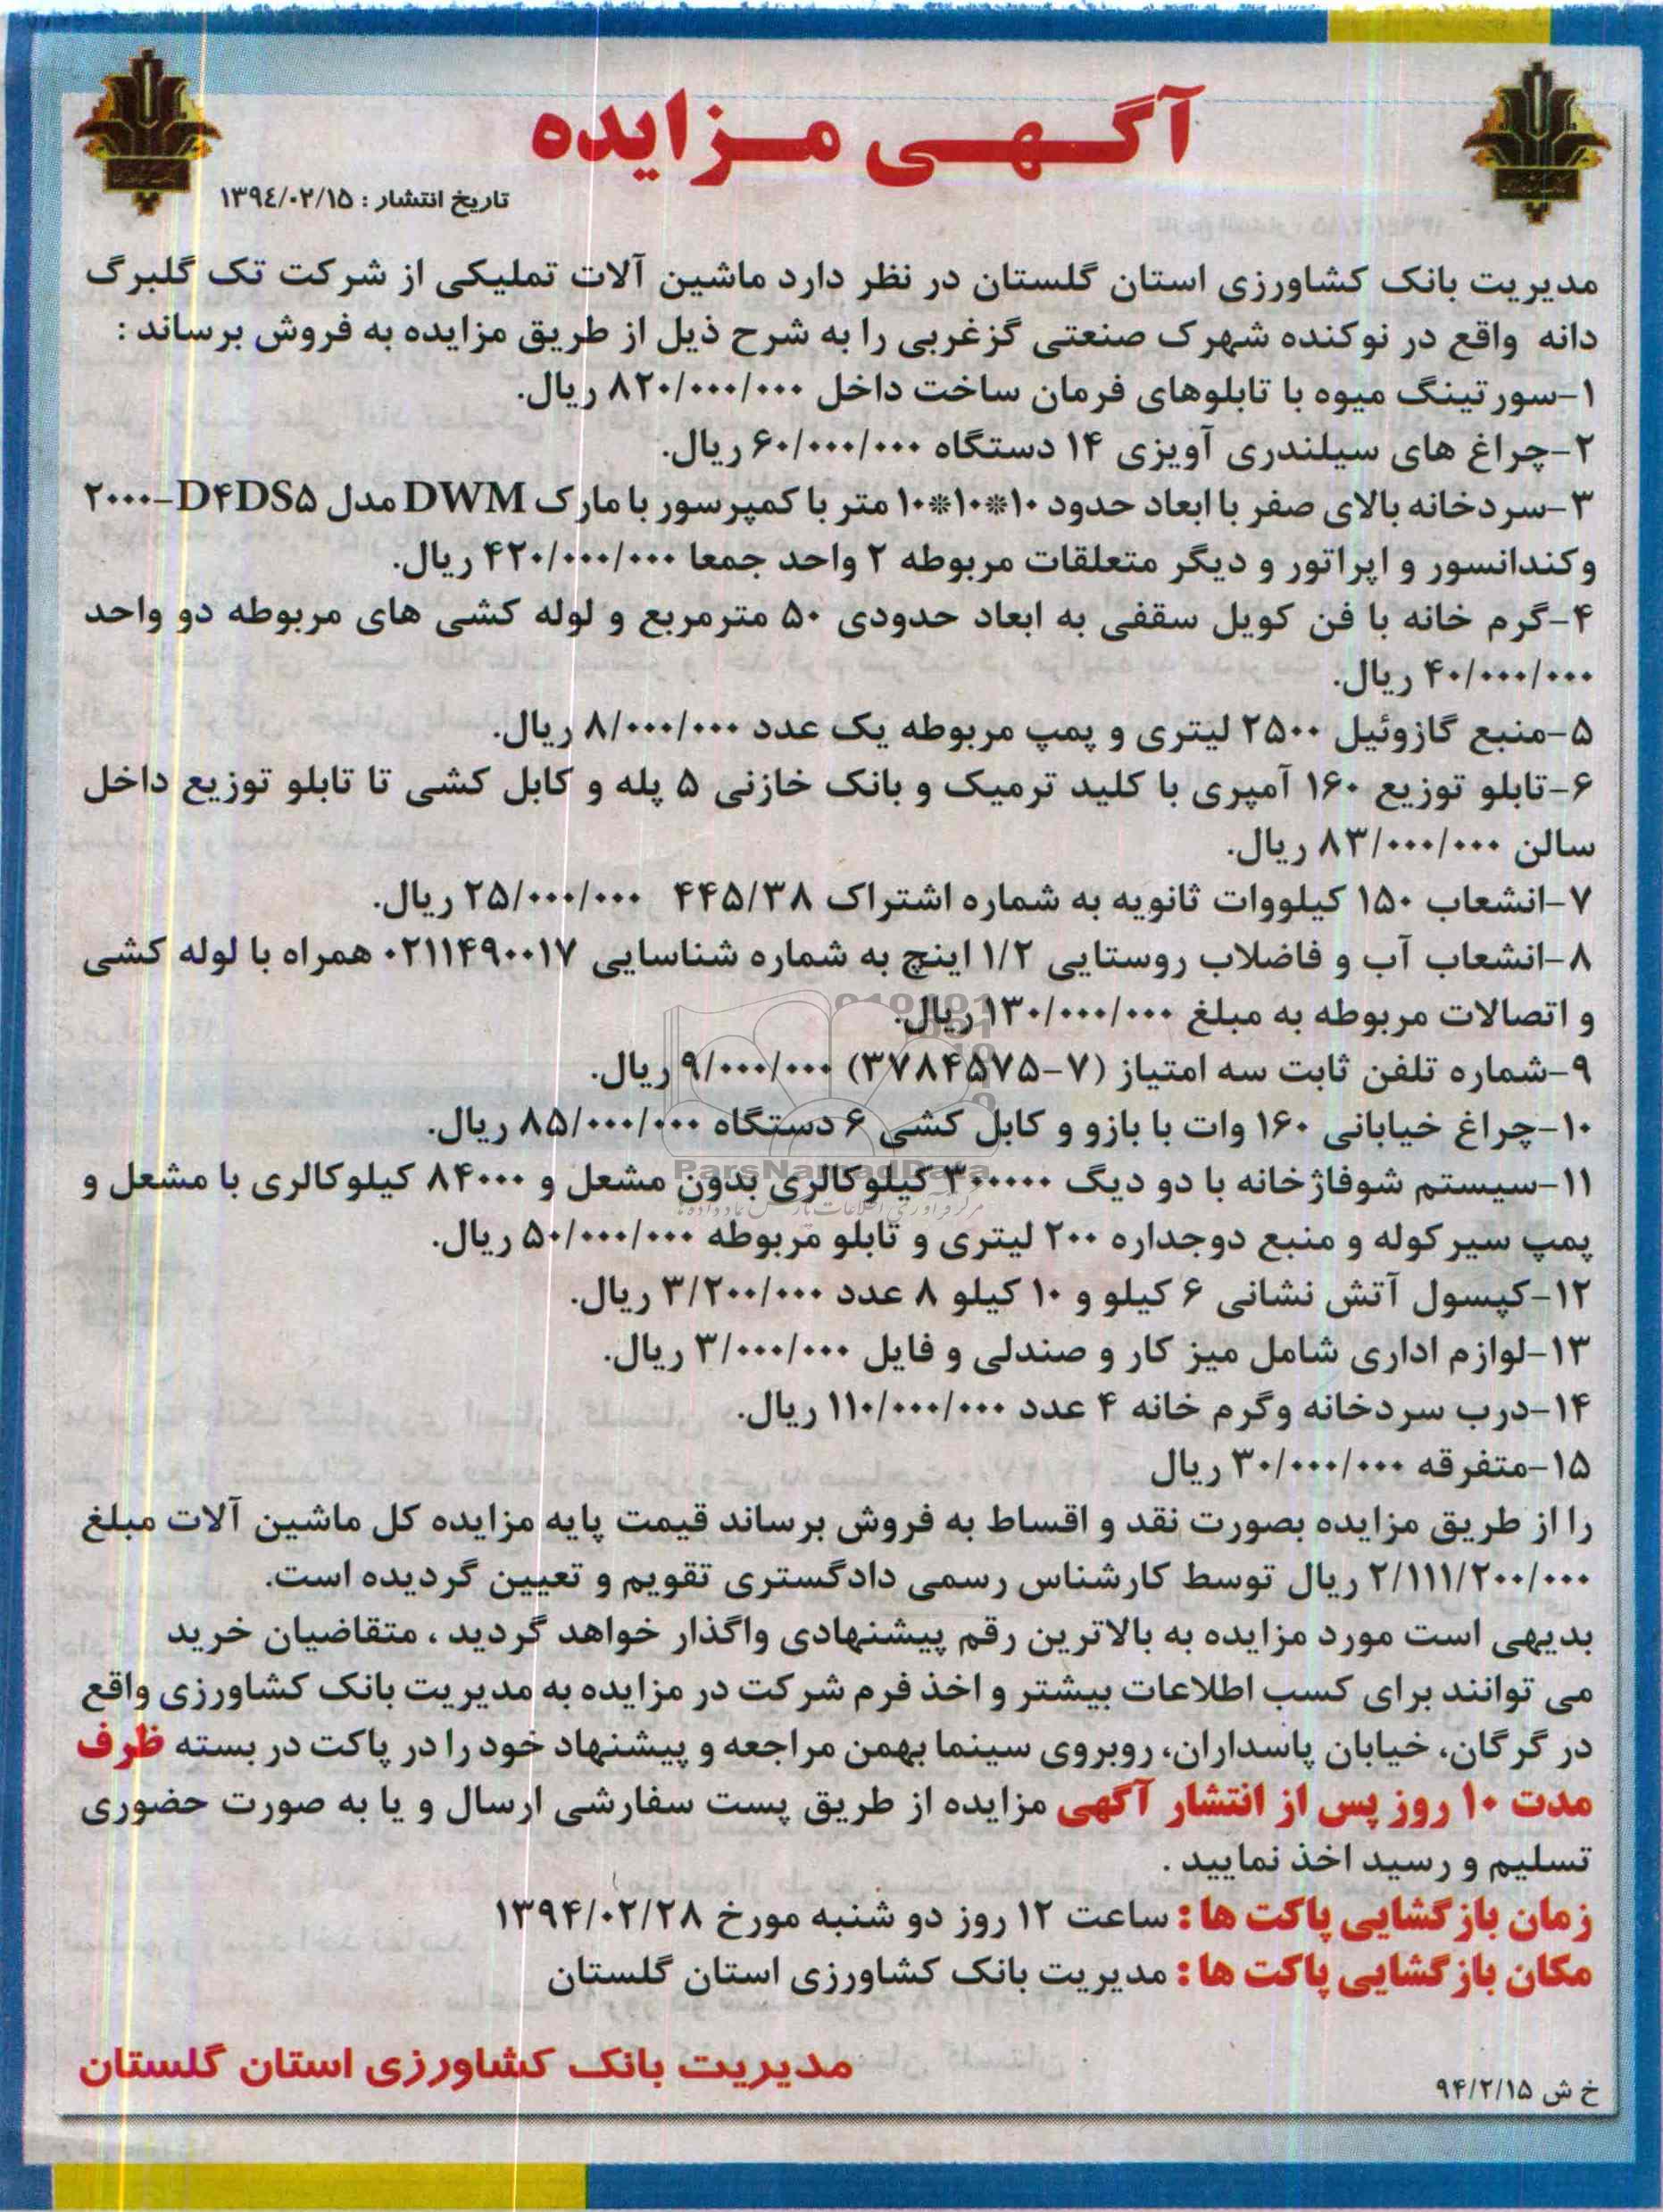 آگهی مزایده
تاریخ انتشار : ۱۳۹٤/۰۲/۱۵
مدیریت بانک کشاورزی استان گلستان در نظر دارد ماشین آلات تملیکی از شرکت تک گلبرگ
دانه واقع در نوکنده شهرک صنعتی گزغربی را به شرح ذیل از طریق مزایده به فروش برساند :
۱-سورتینگ میوه با تابلوهای فرمان ساخت داخل ۸۲۰/۰۰۰/۰۰۰ ریال.
۲-چراغ های سیلندری آویزی ۱۴ دستگاه ۶۰/۰۰۰/۰۰۰ ریال.
۳-سردخانه بالای صفر با ابعاد حدود ۱۰*۱۰*۱۰ متر با کمپرسور با مارک DWM مدل D۴DS۵-۲۰۰۰
وکندانسور و اپراتور و دیگر متعلقات مربوطه ۲ واحد جمعا ۴۲۰/۰۰۰/۰۰۰ ریال.
۴-گرم خانه با فن کویل سقفی به ابعاد حدودی ۵۰ مترمربع و لوله کشی های مربوطه دو واحد
۴۰/۰۰۰/۰۰۰ ریال.
۵-منبع گازوئیل ۲۵۰۰ لیتری و پمپ مربوطه یک عدد ۸/۰۰۰/۰۰۰ ریال.
۶-تابلو توزیع ۱۶۰ آمپری با کلید ترمیک و بانک خازنی ۵ پله و کابل کشی تا تابلو توزیع داخل
سالن ۸۳/۰۰۰/۰۰۰ ریال.
۷-انشعاب ۱۵۰ کیلووات ثانویه به شماره اشتراک ۴۴۵/۳۸ ۲۵/۰۰۰/۰۰۰ ریال.
۸-انشعاب آب و فاضلاب روستایی ۱/۲ اینچ به شماره شناسایی ۰۲۱۱۴۹۰۰۱۷ همراه با لوله کشی
و اتصالات مربوطه به مبلغ ۱۳۰/۰۰۰/۰۰۰ ریال.
۹-شماره تلفن ثابت سه امتیاز (۷-۳۷۸۴۵۷۵) ۹/۰۰۰/۰۰۰ ریال.
۱۰-چراغ خیابانی ۱۶۰ وات با بازو و کابل کشی ۶ دستگاه ۸۵/۰۰۰/۰۰۰ ریال.
ParsNamadData
مرکز فرآوری اطلاعات پارس نماد داده ها
۱۱-سیستم شوفاژخانه با دو دیگ ۳۰۰۰۰۰ کیلوکالری بدون مشعل و ۸۴۰۰۰ کیلوکالری با مشعل و
پمپ سیرکوله و منبع دوجداره ۲۰۰ لیتری و تابلو مربوطه ۵۰/۰۰۰/۰۰۰ ریال.
۱۲-کپسول آتش نشانی ۶ کیلو و ۱۰ کیلو ۸ عدد ۳/۲۰۰/۰۰۰ ریال.
۱۳-لوازم اداری شامل میز کار و صندلی و فایل ۳/۰۰۰/۰۰۰ ریال.
۱۴-درب سردخانه وگرم خانه ۴ عدد ۱۱۰/۰۰۰/۰۰۰ ریال.
۱۵-متفرقه ۳۰/۰۰۰/۰۰۰ ریال
را از طریق مزایده بصورت نقد و اقساط به فروش برساند قیمت پایه مزایده کل ماشین آلات مبلغ
۲/۱۱۱/۲۰۰/۰۰۰ ریال توسط کارشناس رسمی دادگستری تقویم و تعیین گردیده است.
بدیهی است مورد مزایده به بالاترین رقم پیشنهادی واگذار خواهد گردید ، متقاضیان خرید
می توانند برای کسب اطلاعات بیشتر و اخذ فرم شرکت در مزایده به مدیریت بانک کشاورزی واقع
در گرگان، خیابان پاسداران، روبروی سینما بهمن مراجعه و پیشنهاد خود را در پاکت در بسته ظرف
مدت ۱۰ روز پس از انتشار آگهی مزایده از طریق پست سفارشی ارسال و یا به صورت حضوری
تسلیم و رسید اخذ نمایید .
زمان بازگشایی پاکت ها : ساعت ۱۲ روز دو شنبه مورخ ۱۳۹۴/۰۲/۲۸
مکان بازگشایی پاکت ها : مدیریت بانک کشاورزی استان گلستان
مدیریت بانک کشاورزی استان گلستان
خ ش ۹۴/۲/۱۵